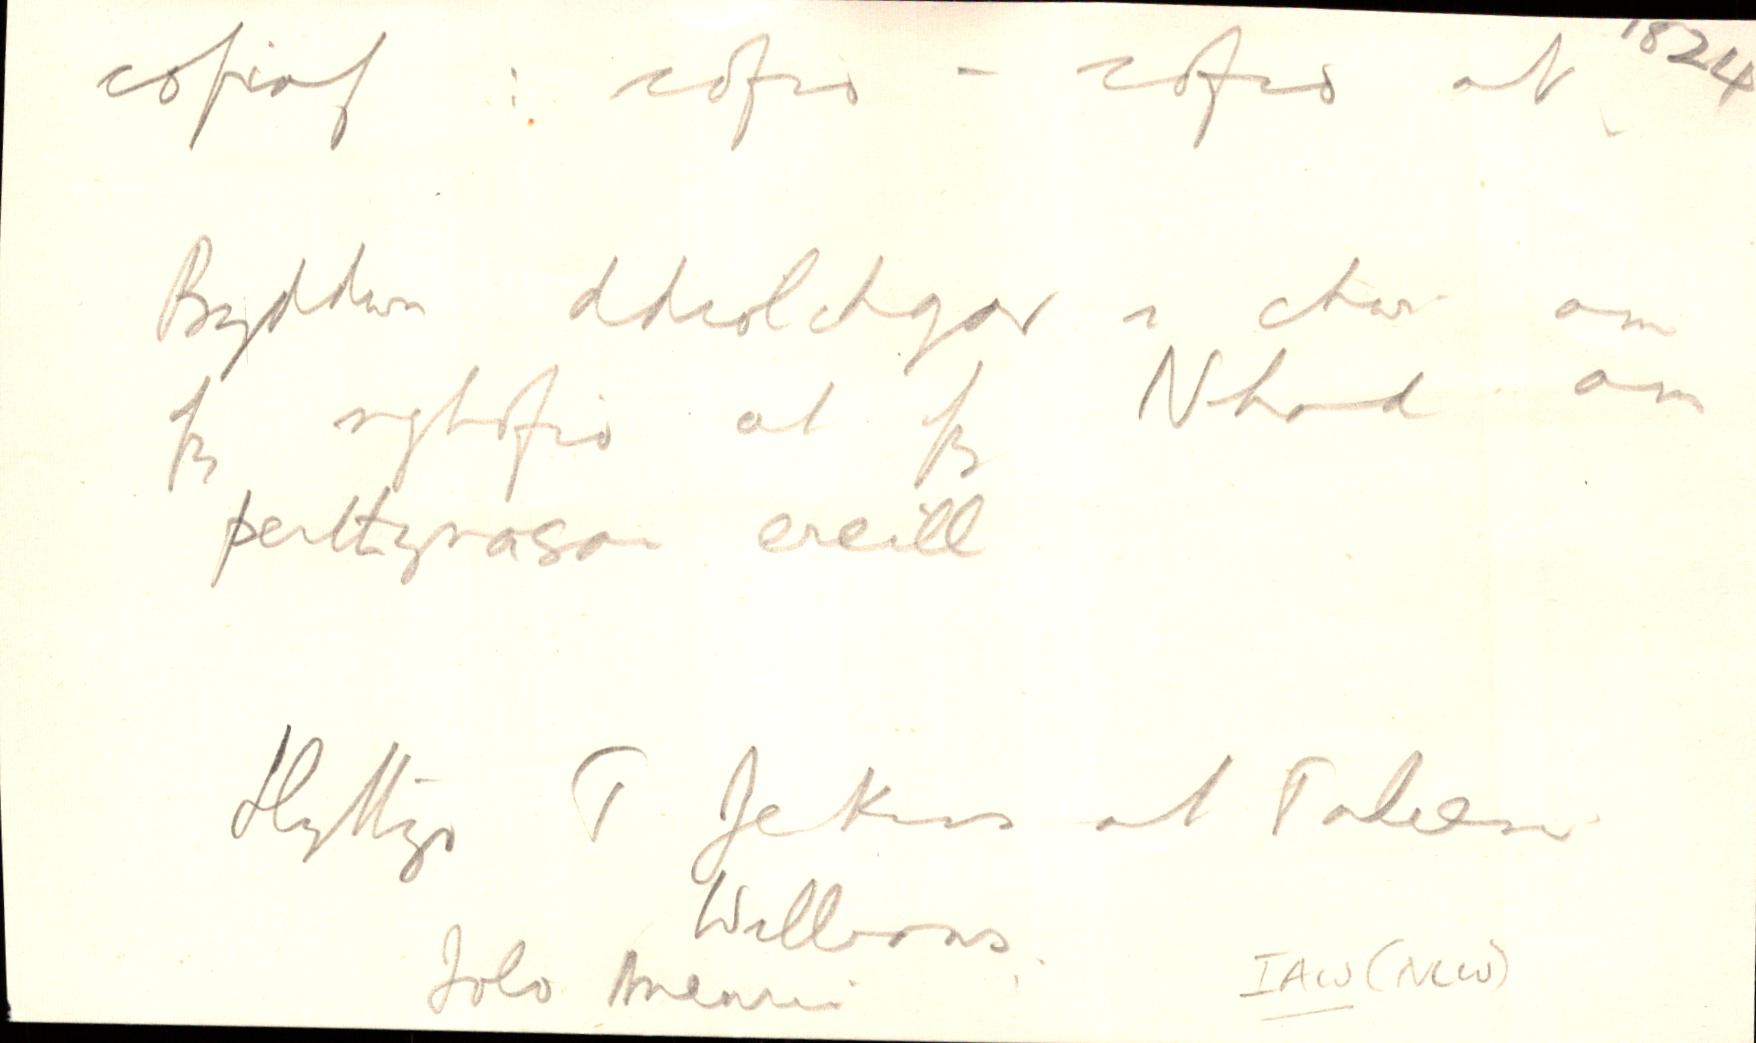 cofiaf : cofio - cofio at 1824
Byddwn ddiolchgar i chwi am
fy nghofio at fy Nhad am
perthynasau ereill
Llythyr T Jenkins at Taliesin
Williams
Iolo Aneurin
IAW (NLW)